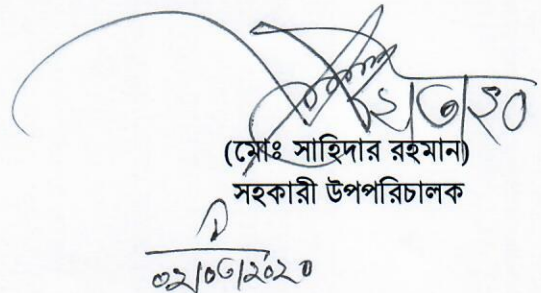 ২/৩/২০
(মোঃ সাহিদার রহমান)
সহকারী উপপরিচালক
০২/০৩/২০২০